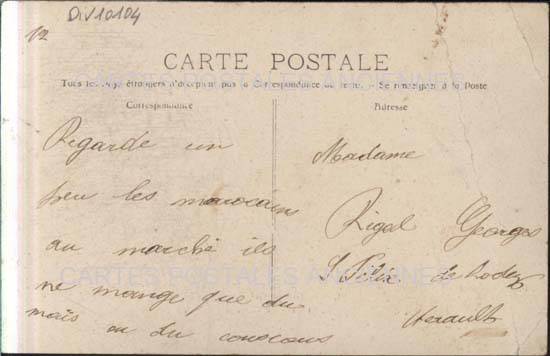 DIV10104
12
CARTE POSTALE
Tous les Pays étrangers n'acceptent pas la Correspondance au recto. - Se renseigner à la Poste
Correspondance
Regarde un
peu les marocains
au marché ils
ne mange que du
maïs ou du couscous
Adresse
Madame
Rigal Georges
St Félix de Lodez
Herault
CARTES POSTALES ANCIENNES
CARTES POSTALES ANCIENNES